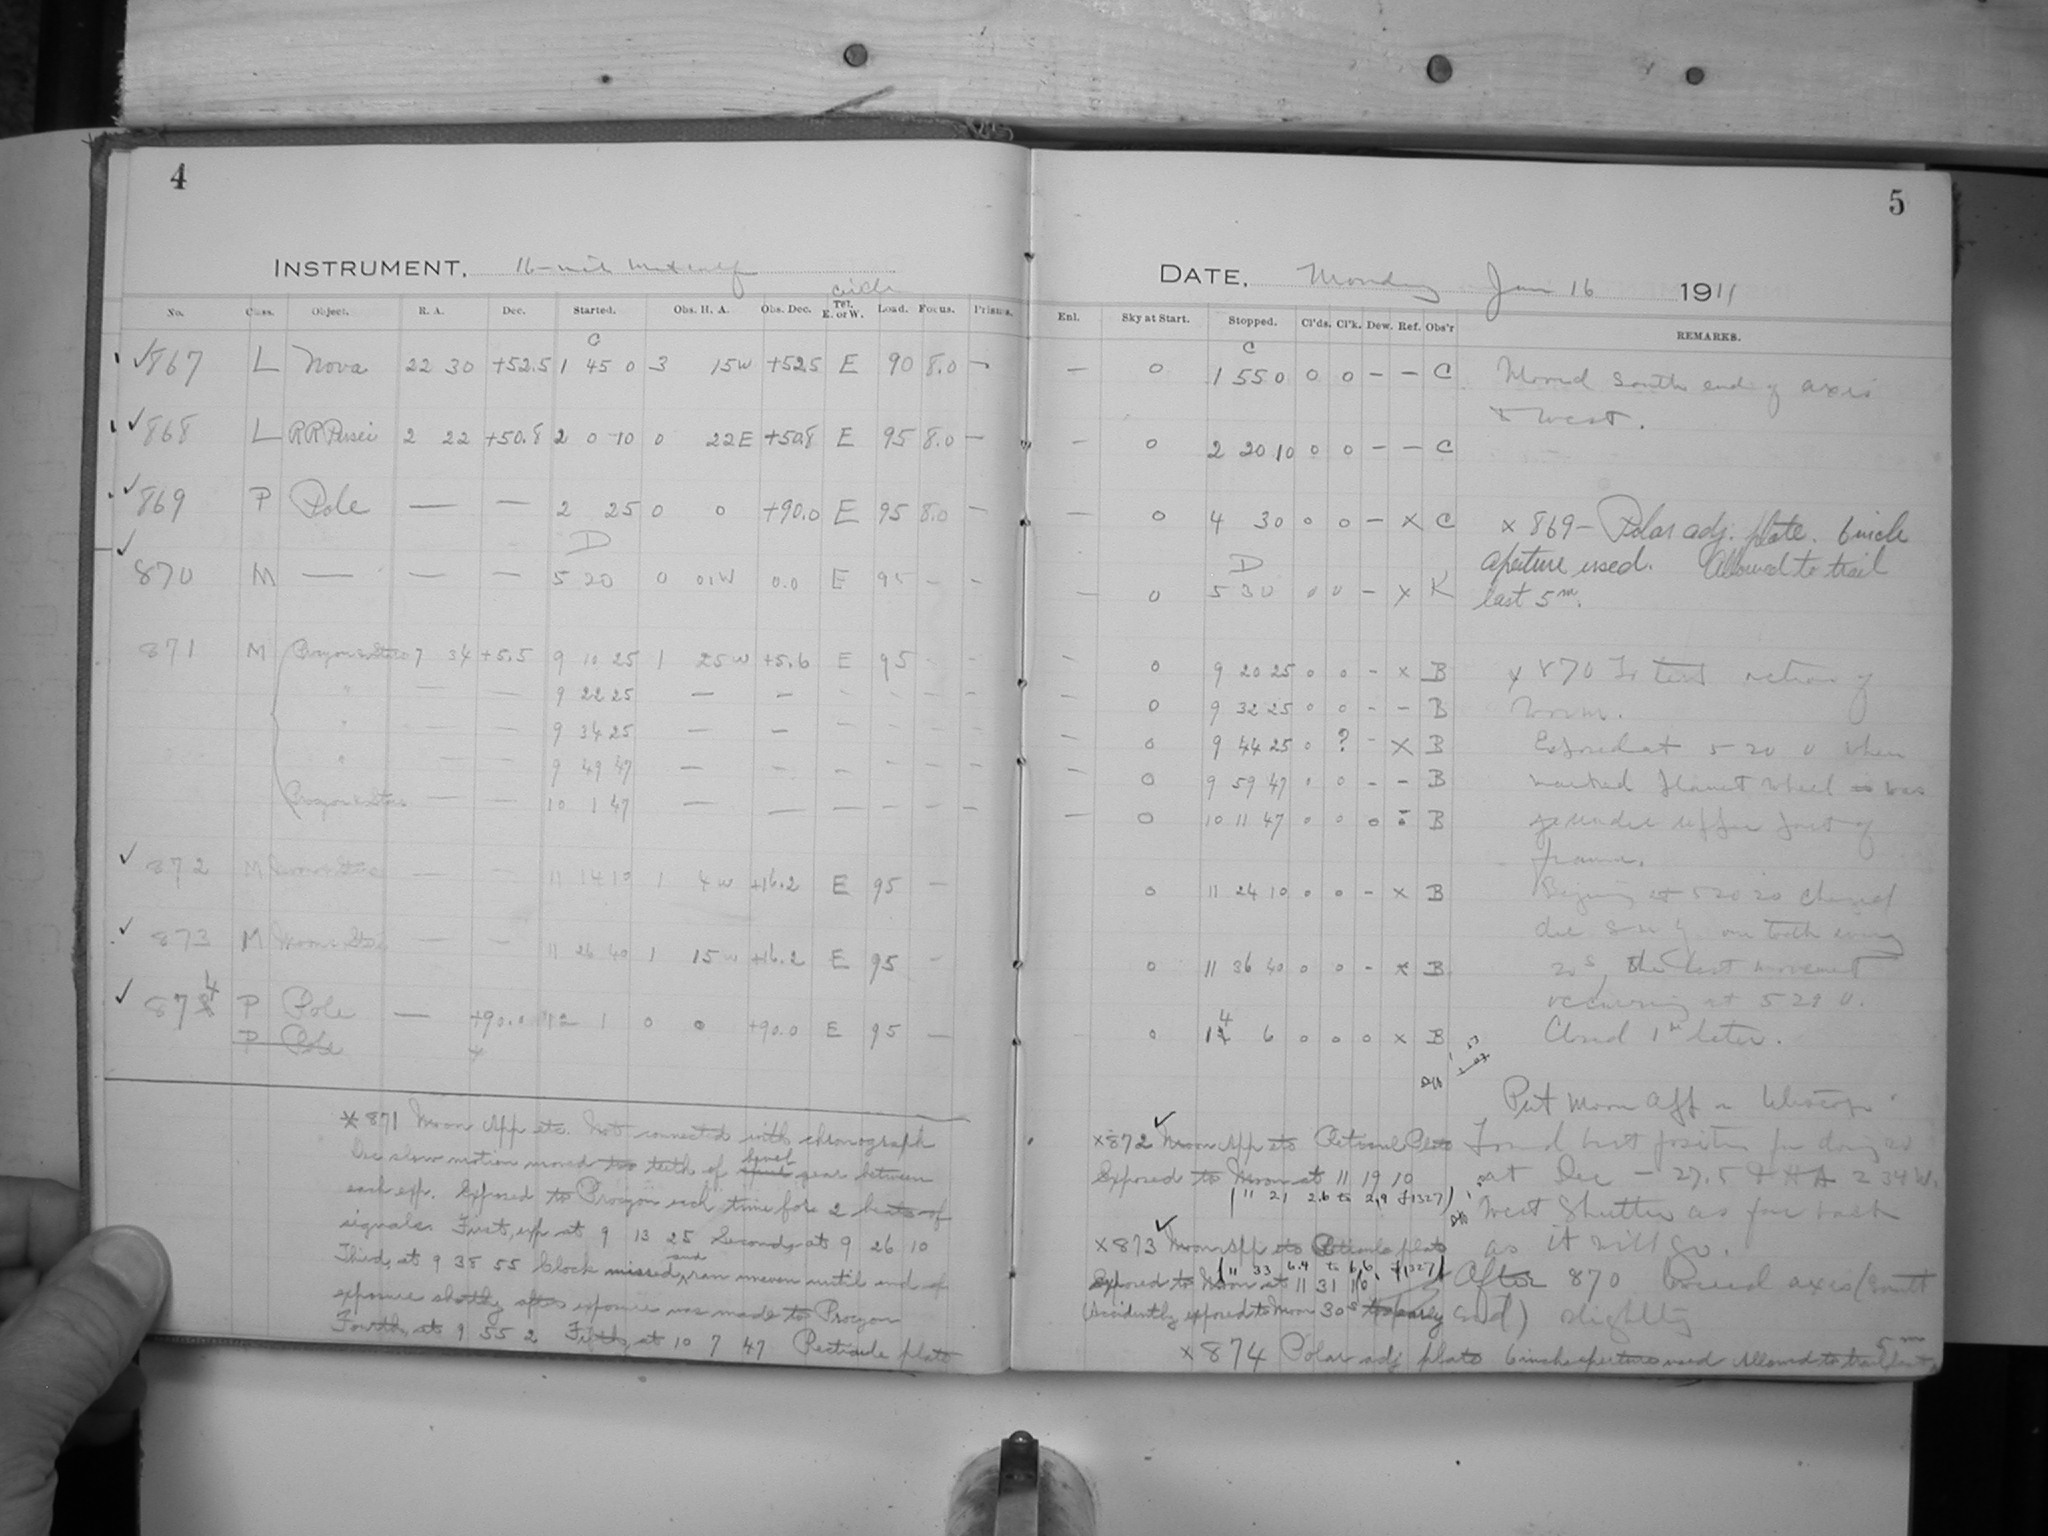 4
INSTRUMENT. 16-inch Metcalf
circle
No. Class. Object. R. A. Dec. Started. Obs. H. A. Obs. Dec. Tel. E. or W. Load. Focus. Prisms.
C
✓867 L Nova 22 30 +52.5 1 45 0 3 15W +52.5 E 90 8.0 —
✓868 L RR Persei 2 22 +50.8 2 0 10 0 22E +50.8 E 95 8.0 —
✓869 P Pole — — 2 25 0 0 +90.0 E 95 8.0 —
D
✓870 M — — — 5 20 0 01W 0.0 E 95 - -
871 M Procyon & Stars 7 34 +5.5 9 10 25 1 25W +5.6 E 95 - -
" — — 9 22 25 — — - - - -
" — — 9 34 25 — — - - - -
" — — 9 49 47 — — - - - -
Procyon & Stars — — 10 1 47 — — — - - -
✓872 M Moon & Stars — — 11 14 10 1 4W +16.2 E 95 —
✓873 M Moon & Stars — — 11 26 40 1 15W +16.2 E 95 —
✓874 P Pole — +90.0 12 1 0 0 +90.0 E 95 —
P Pole
* 871 Moon App etc. Not connected with chronograph
Dec slow motion moved two teeth of bevel gear between
each exp. Exposed to Procyon each time for 2 beats of
signals. First, exp at 9 13 25 Second, at 9 26 10
Third, at 9 38 55 Clock missed, and ran uneven until end of
exposure shortly after exposure was made to Procyon
Fourth, at 9 55 2 Fifth, at 10 7 47 plate
5
DATE. Monday Jan 16 1911
Enl. Sky at Start. Stopped. Cl'ds. Cl'k. Dew. Ref. Obs'r REMARKS.
C
— 0 1 55 0 0 0 — — C Moved south end of axis
to west.
— 0 2 20 10 0 0 — — C
0 4 30 0 0 — x C x 869 — Polar adj. plate. 6 inch
aperture used. Allowed to trail
last 5m.
D
— 0 5 30 0 0 — x K
— 0 9 20 25 0 0 - x B x 870 To test action of
worm.
— 0 9 32 25 0 0 - - B
— 0 9 44 25 0 ? - x B Exposed at 5 20 0 when
— 0 9 59 47 0 0 - - B marked planet wheel was
— 0 10 11 47 0 0 0 - B under upper part of
frame.
0 11 24 10 0 0 - x B Beginning at 5 20 20
one tooth every
0 11 36 40 0 0 - x B 20s, the last movement
occurring at 5 29 0.
0 14 6 0 0 0 x B Closed 1m later.
Put Moon App on telescope
Found best position for doing so
at Dec — 27.5 & HA 2 34 W.
West Shutter as far back
as it will go.
After 870 moved axis (south
end) slightly
x872 Moon App etc Plate
Exposed to Moon at 11 19 10
(11 21 2.6 to 2.9 f1327)
x873 Moon App etc plate
(11 33 6.4 to 6.6 f1327)
Exposed to Moon at 11 31 10
(Accidently exposed to Moon 30s too early)
x874 Polar adj plate 6 inch aperture used Allowed to trail last 5m